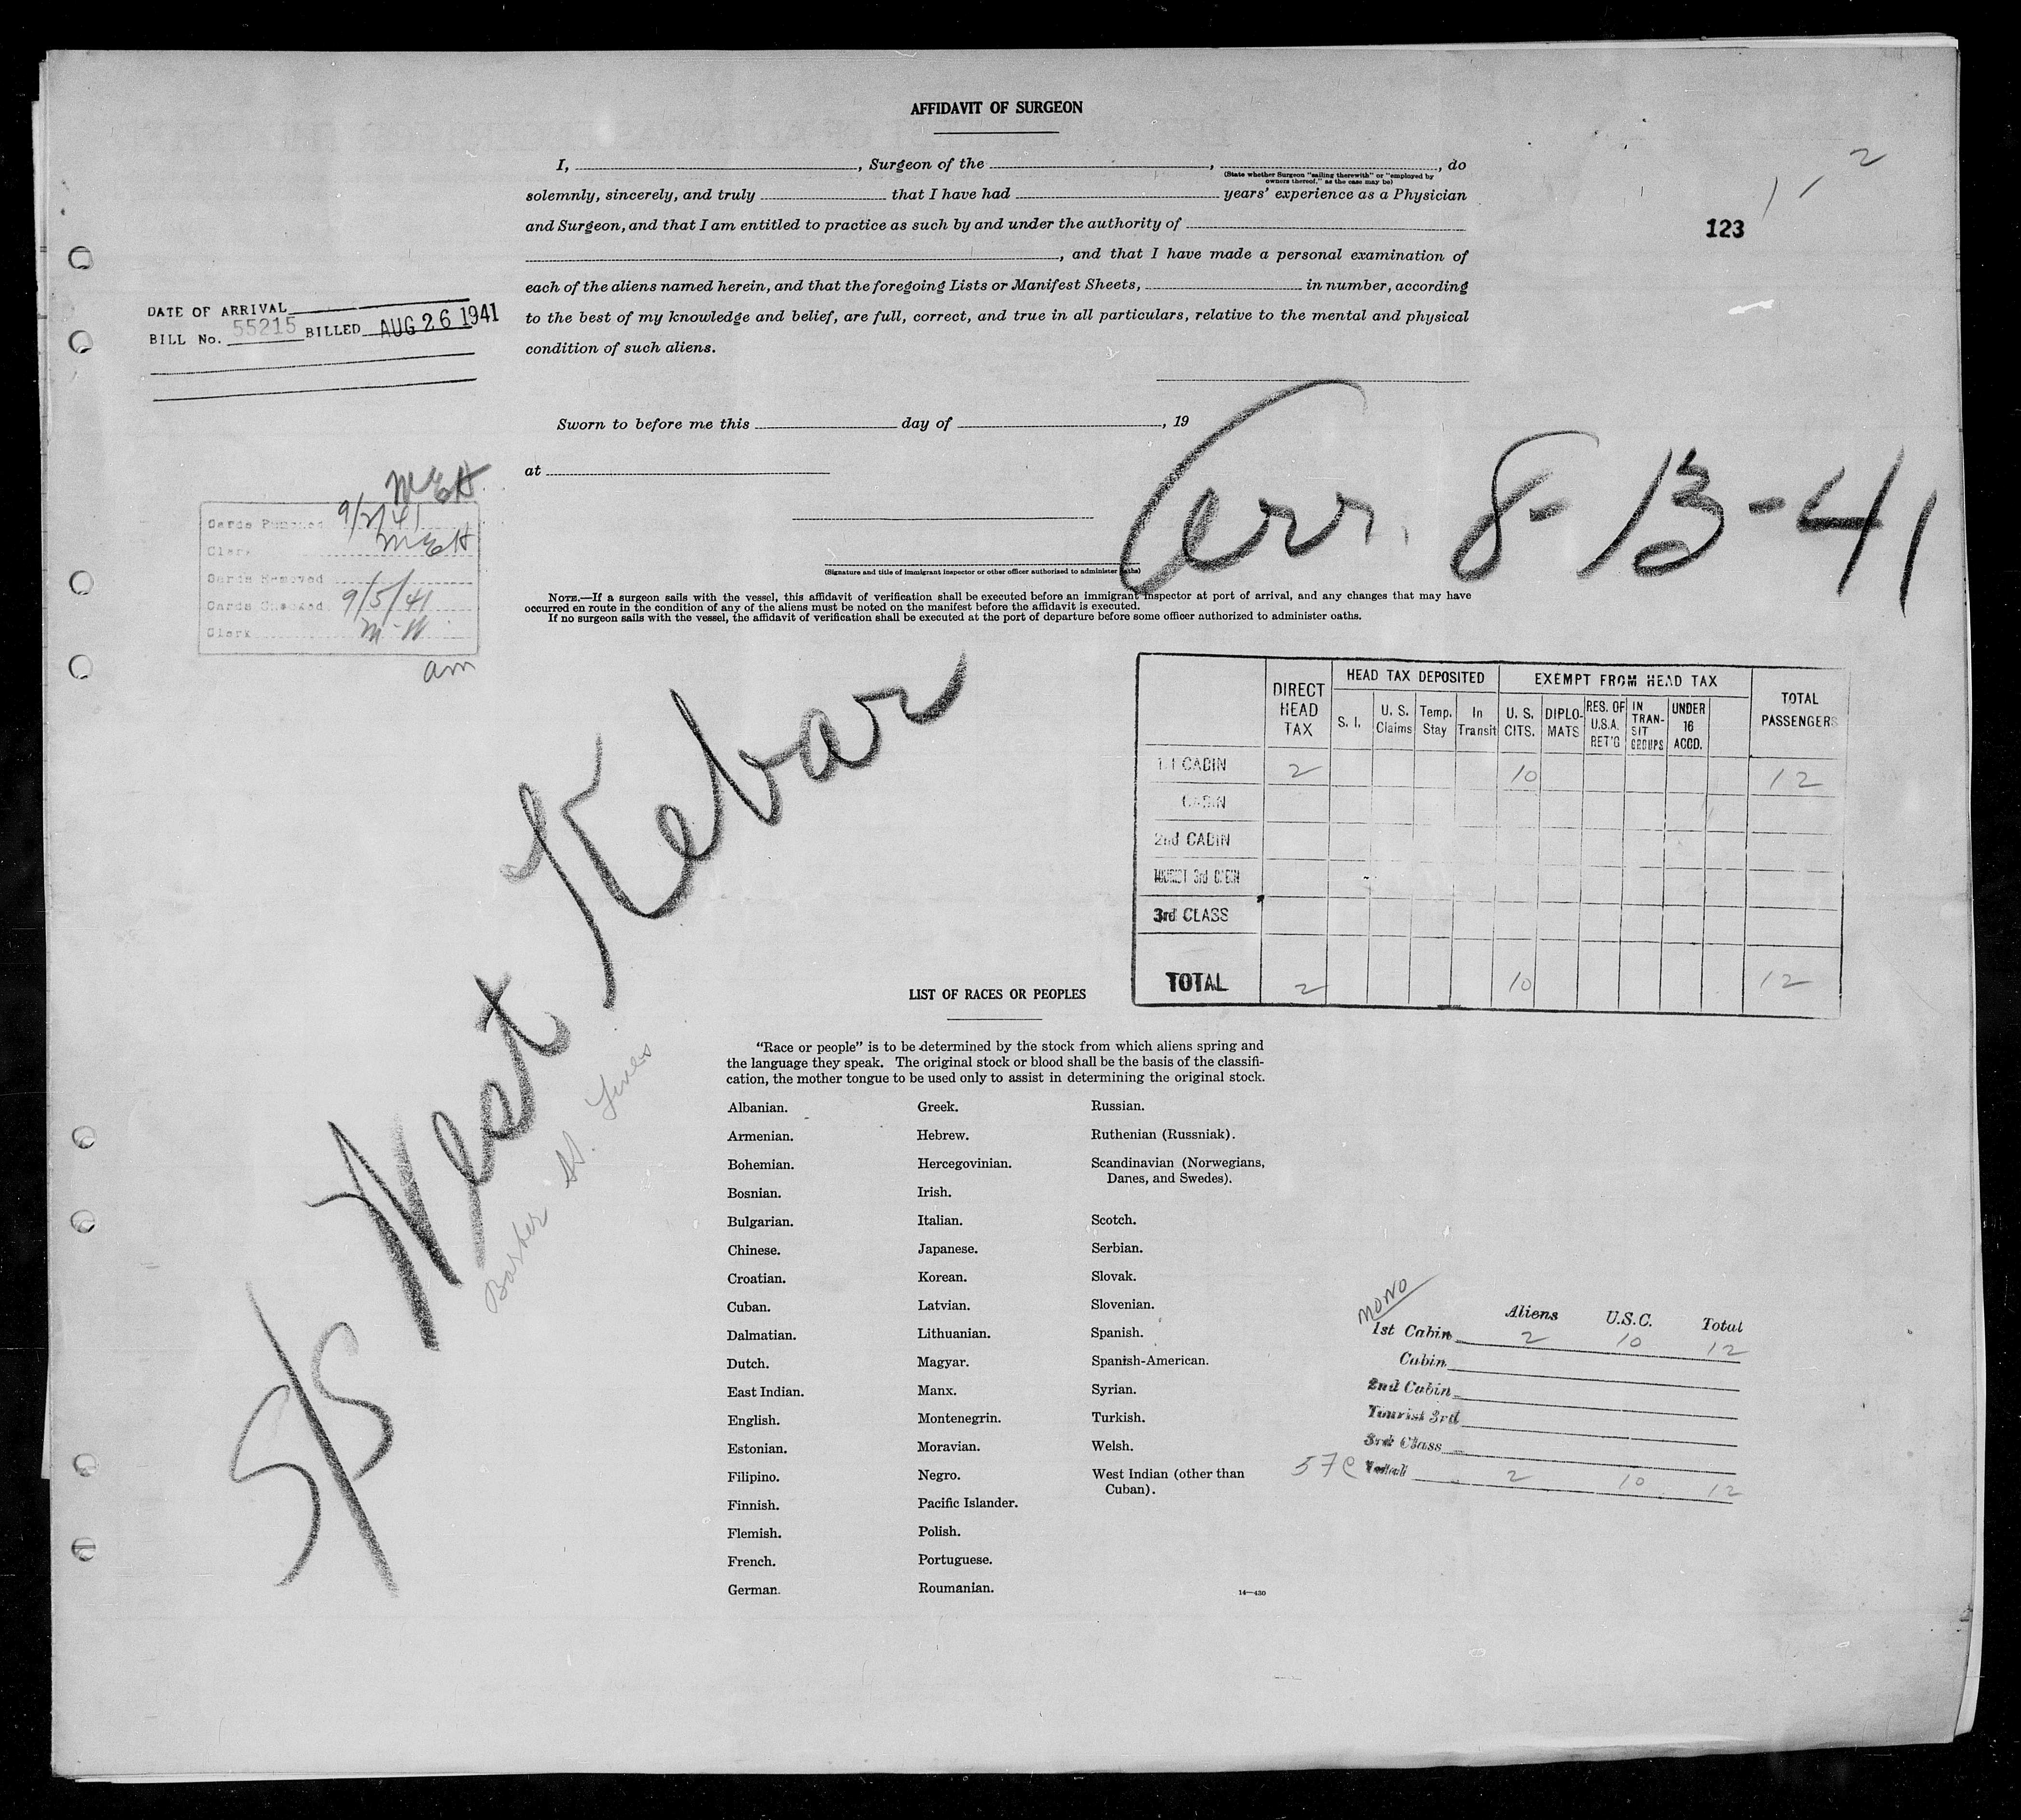 AFFIDAVIT OF SURGEON
2
I, , Surgeon of the , , do
(State whether Surgeon "sailing therewith" or "employed by
owners thereof," as the case may be)
solemnly, sincerely, and truly that I have had years' experience as a Physician
and Surgeon, and that I am entitled to practice as such by and under the authority of
123
, and that I have made a personal examination of
each of the aliens named herein, and that the foregoing Lists or Manifest Sheets, in number, according
to the best of my knowledge and belief, are full, correct, and true in all particulars, relative to the mental and physical
condition of such aliens.
DATE OF ARRIVAL
BILL No. 55215 BILLED AUG 26 1941
Sworn to before me this day of , 19
at
Arr. 8-13-41
(Signature and title of immigrant inspector or other officer authorized to administer oaths)
MEH
Cards Punched 9/2/41
Clerk MEH
Cards Removed
Cards Checked 9/5/41
Clerk M-W
am
NOTE.—If a surgeon sails with the vessel, this affidavit of verification shall be executed before an immigrant inspector at port of arrival, and any changes that may have
occurred en route in the condition of any of the aliens must be noted on the manifest before the affidavit is executed.
If no surgeon sails with the vessel, the affidavit of verification shall be executed at the port of departure before some officer authorized to administer oaths.
S/S West Kebar
Barber SS. Lines
DIRECT HEAD TAX HEAD TAX DEPOSITED EXEMPT FROM HEAD TAX TOTAL PASSENGERS
S. I. U. S. Claims Temp. Stay In Transit U. S. CITS. DIPLO-MATS RES. OF U.S.A. RET'G IN TRAN-SIT GROUPS UNDER 16 ACCD.
1st CABIN 2 10 12
CABIN
2nd CABIN
TOURIST 3rd CABIN
3rd CLASS
TOTAL 2 10 12
LIST OF RACES OR PEOPLES
"Race or people" is to be determined by the stock from which aliens spring and
the language they speak. The original stock or blood shall be the basis of the classifi-
cation, the mother tongue to be used only to assist in determining the original stock.
Albanian. Greek. Russian.
Armenian. Hebrew. Ruthenian (Russniak).
Bohemian. Hercegovinian. Scandinavian (Norwegians,
Danes, and Swedes).
Bosnian. Irish.
Bulgarian. Italian. Scotch.
Chinese. Japanese. Serbian.
Croatian. Korean. Slovak.
Cuban. Latvian. Slovenian.
Dalmatian. Lithuanian. Spanish.
Dutch. Magyar. Spanish-American.
East Indian. Manx. Syrian.
English. Montenegrin. Turkish.
Estonian. Moravian. Welsh.
Filipino. Negro. West Indian (other than
Cuban).
Finnish. Pacific Islander.
Flemish. Polish.
French. Portuguese.
German. Roumanian.
14—430
MONO
Aliens U.S.C. Total
1st Cabin 2 10 12
Cabin
2nd Cabin
Tourist 3rd
3rd Class
57c Total 2 10 12